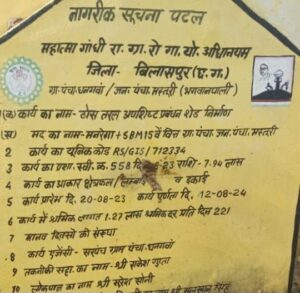 नागरीक सूचना पटल
महात्मा गांधी रा.ग्रा.रो.गा.यो. अधिनियम
जिला- बिलासपुर (छ.ग.)
ग्रा.पंचा-धनगवां / जन. पंचा. मस्तुरी
(क) कार्य का नाम- ठोस तरल अपशिष्ट प्रबंधन शेड निर्माण
मद का नाम-मनरेगा+SBM 15 वें वित्त ग्रा.पंचा. जन.पंचा. मस्तुरी
2 कार्य का यूनिक कोड RS/GIS/712334
3 कार्य का प्रशा. स्वी. क्र. 558 23 राशि- 7.94 लाख
4 कार्य का प्रकार क्षेत्रफल व इकाई
5 कार्य प्रारंभ दि. 20-08-23 कार्य पूर्णता दि. 12-08-24
6 कार्य में श्रमिक लागत 1.27 लाख श्रमिक दर प्रति दिन 221
7 मानव दिवसों की संख्या
8 कार्य एजेंसी - सरपंच ग्राम पंचा. धनगवां
9 तकनीकी सहा. का नाम - श्री
10 का नाम - श्री सुरेश सोनी